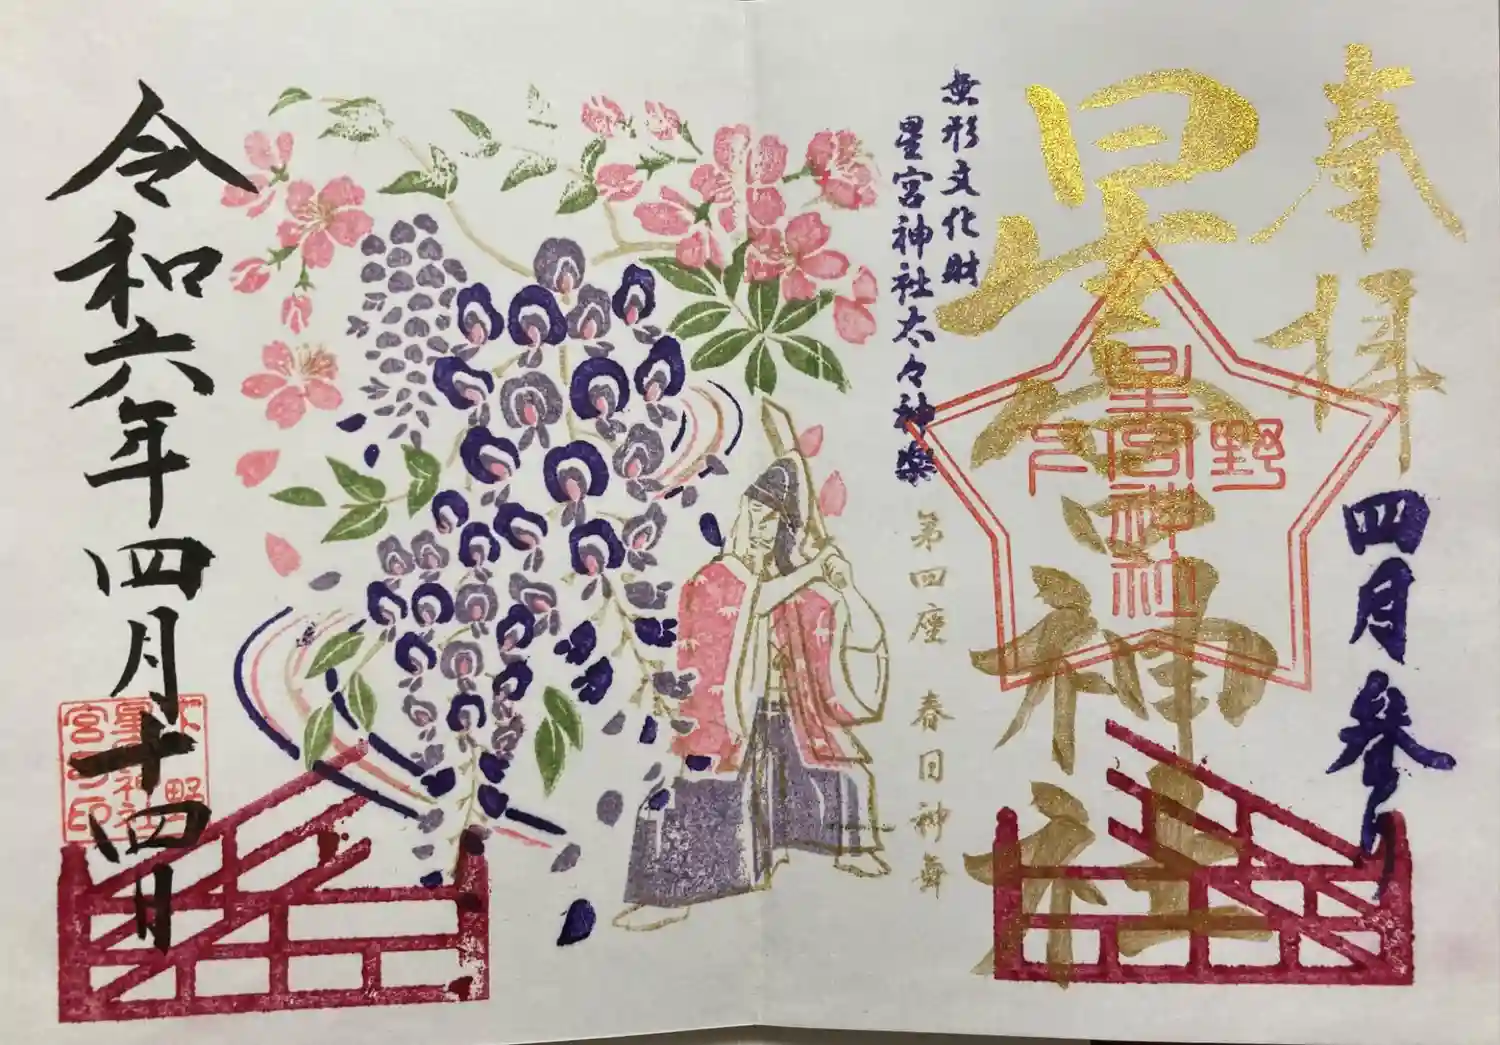 奉拝
四月参り
星宮神社
下野
星宮神社
無形文化財
星宮神社太々神楽
第四座 春日神舞
令和六年四月十四日
下野
星宮神社
宮司之印